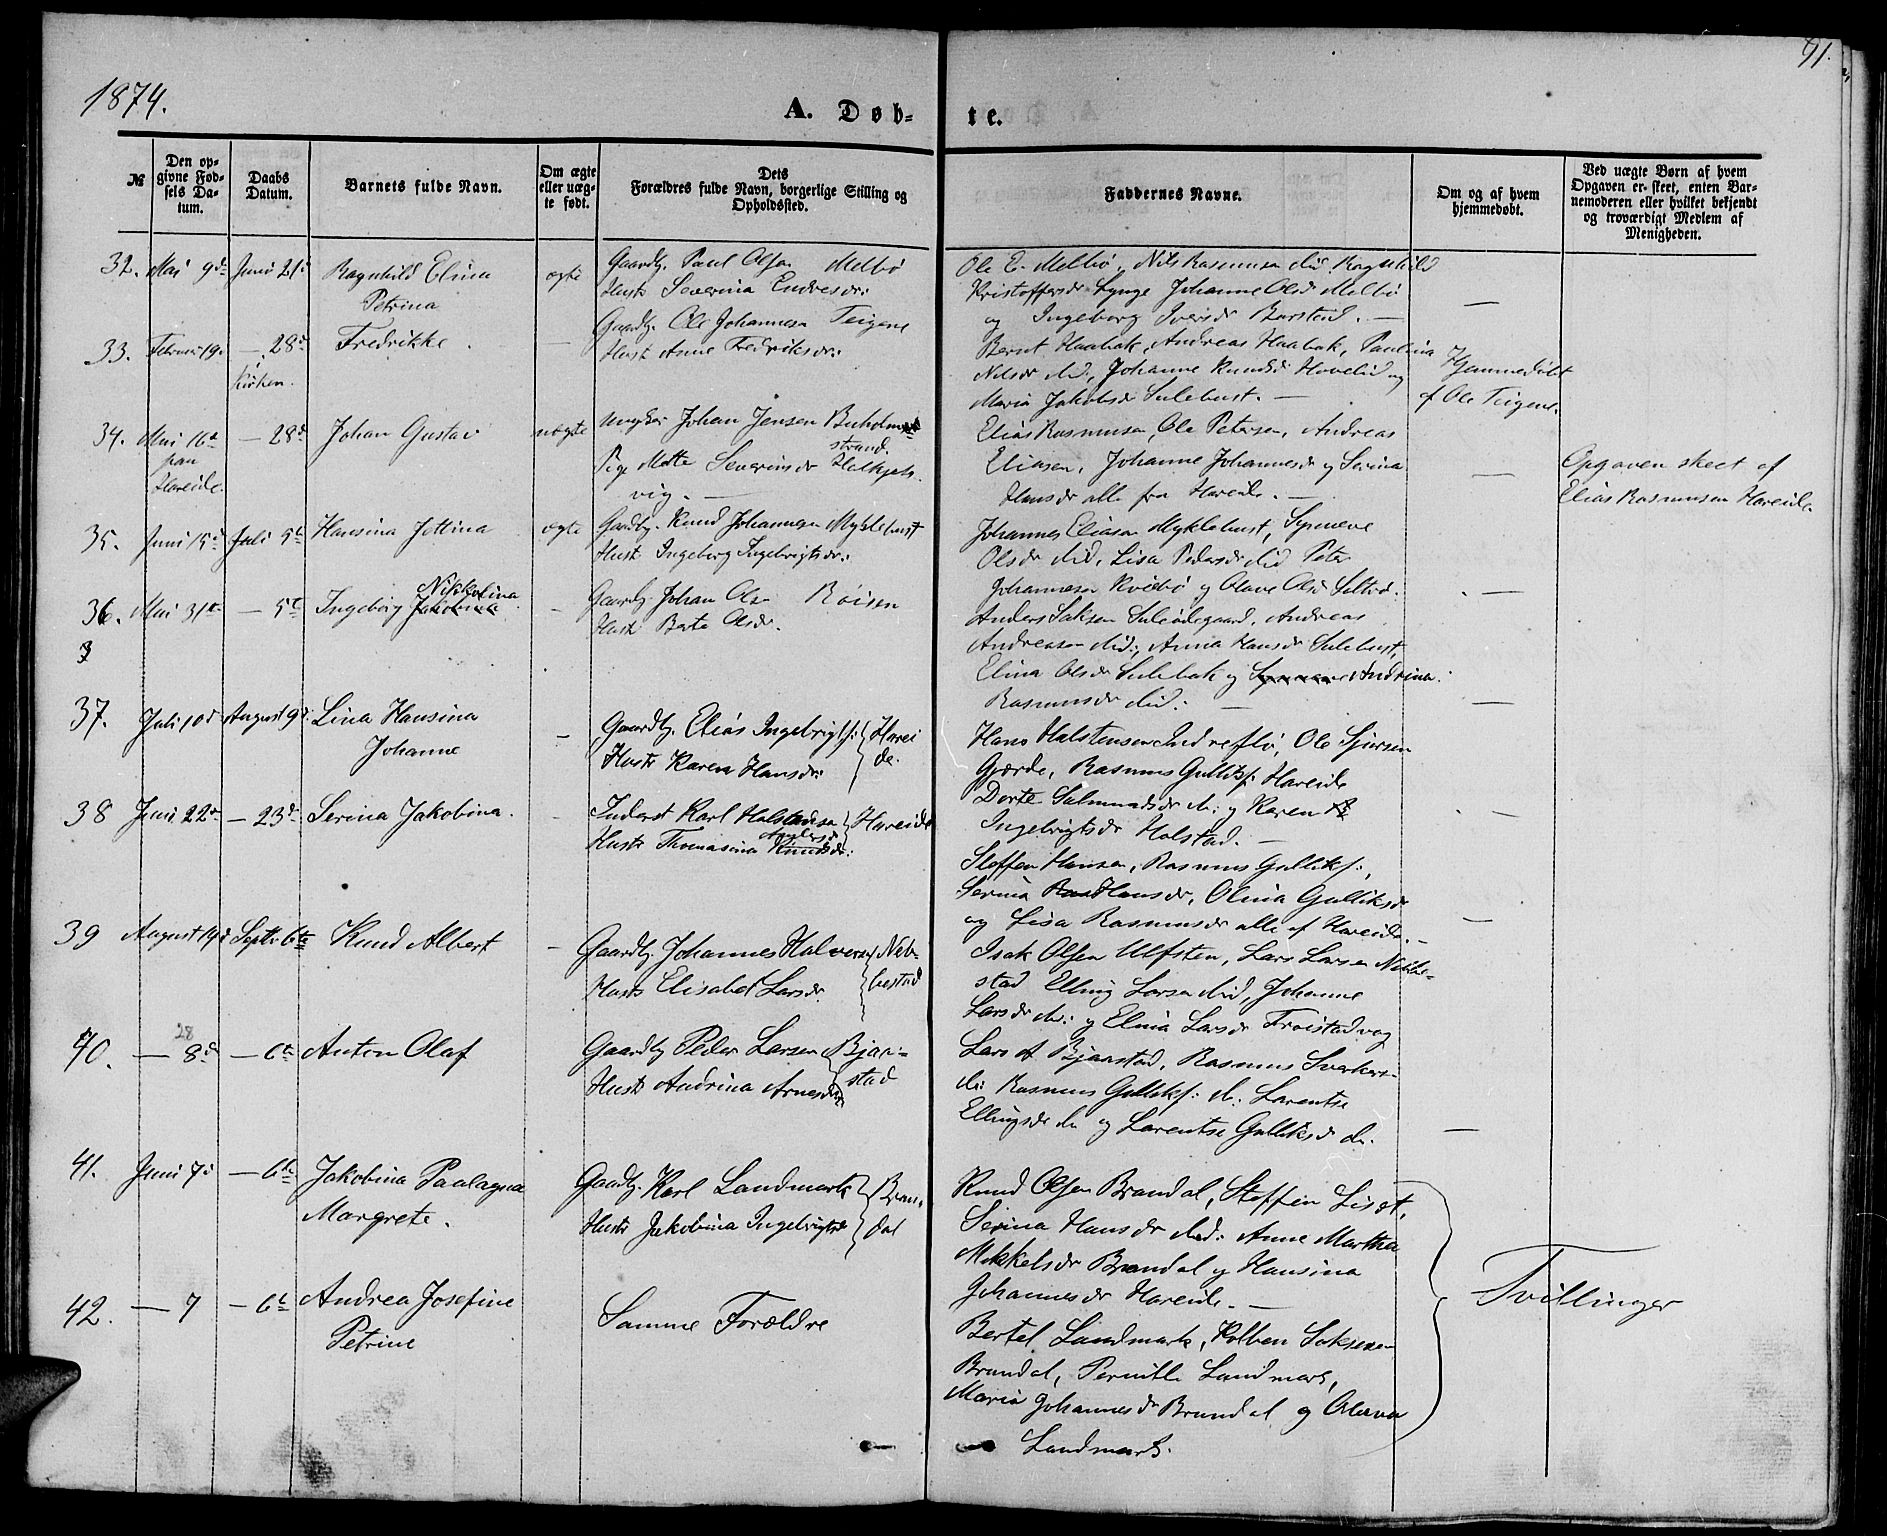 1874.
91.
A. Døb-
te.
№
Den op-
givne Fød-
sels Da-
tum.
Daabs
Datum.
Barnets fulde Navn.
Om ægte
eller uæg-
te født.
Dets
Forældres fulde Navn, borgerlige Stilling og
Opholdssted.
Faddernes Navne.
Om og af hvem
hjemmedøbt.
Ved uægte Børn af hvem
Opgaven er skeet, enten Bar-
nemoderen eller hvilket bekjendt
og troværdigt Medlem af
Menigheden.
32. Mai 9de Juni 21d Ragnhild Elina ægte Gaardbr. Paul Olsen Melbø
Petrina Hustr Severina Endresdr:
Ole E. Melbø, Nils Rasmussen ibid, Ragnhild
Kristoffersdr Lynge Johanne Olsd Melbø
og Ingeborg Iversdr Barstad. —
—
33. Februar 19. — 28d Fredrikke. — Gaardbr. Ole Johannesen Teigene
i
kirken. Hustr Anne Fredriksdr:
Bernt Haabak, Andreas Haabak, Paulina
Nilsdr ibid., Johanne Knudsd Hovelid og
Maria Jakobsdr Sulebust. —
Hjemmedøbt
af Ole Teigene.
34. Mai 16d — 28d Johan Gustav uægte Ungkar Johan Jensen Buholm
strand.
paa
Hareide. Pige Mette Severinsdr Helkjels
vig. —
Elias Rasmussen, Ole Petersen, Andreas
Eliasen, Johanne Johannesdr og Serina
Hansdr alle fra Hareide. —
—
Opgaven skeet af
Elias Rasmussen Hareide
35. Juni 15d Juli 5te Hansina Jettina ægte Gaardbr. Knud Johannesen Myklebust
Hustr Ingeborg Ingebrigtsdr:
Johannes Eliasen Myklebust, Synneve
Olsdr ibid, Lisa Pedersdr ibid Peter
Johannesen Kvidbø og Olave Olsd
—
36. Mai 31te — 5te Ingeborg Jakobina — Gaardbr Johan Olsen Røisen
Nikkolina
Hustr Berte Olsdr.
3
Anders Saksen Suleødegaard, Andreas
Andreassen ibid:, Anna Hansdr Sulebust,
Elina Olsdr Sulebak og Synneve Andrina
Rasmusdr ibid: —
—
37. Juli 10d August 9d. Lina Hansina — Gaardbr. Elias Ingebrigts: Harei
Johanne Hustr Karen Hansdr: de.
Hans Halstensen Indreflø, Ole Sjursen
Gjerde, Rasmus Gulliks: Hareide
Dorte Salmundsdr ib: og Karen
Ingebrigtsdr Holstad. —
—
38 Juni 22d — 23d Serina Jakobina. — Inderst Karl Halstensen Hareide
Andersd
Hustr Thomasina Knudsdr:
Steffen Hansen, Rasmus Gulliks:,
Serina Ras Hansdr, Olina Gulliksdr
og Lisa Rasmusdr alle af Hareide. —
—
39 August 19d Septbr 6te Knud Albert — Gaardbr. Johannes Halvorsen Neb-
Hustr Elisabet Larsdr. bestad
Isak Olsen Ulfsten, Lars Larsen Nebbe-
stad Elling Larsen ibid, Johanne
Larsdr ib: og Elina Larsdr Frøistadvog
40. — 8d — 6te Anton Olaf Gaardbr Peder Larsen Bjaa-
28
Hustr Andrina Arnesdr stad
Lars A Bjaastad, Rasmus Sverkers-
ib: Rasmus Gulliks: ib: Larentse
Ellingsdr ib og Larentse Gulliksd ib.
—
41. Juni 7d — 6te Jakobina Paulagna Gaardbr. Karl Landmark Bran-
Margrete. Hustr Jakobina Ingebrigtsd dal
Knud Olsen Brandal, Steffen Liset,
Serina Hansdr ibid: Anne Martha
Mikkelsdr Brandal og Hansina
Johannesdr Hareide. —
Tvillinger
42. — 7 — 6te Andrea Josefine Samme Forældre
Petrine
Bertel Landmark, Kolben Saksen
Brandal, Pernille Landmark,
Maria Johannesdr Brandal og Olava
Landmark.